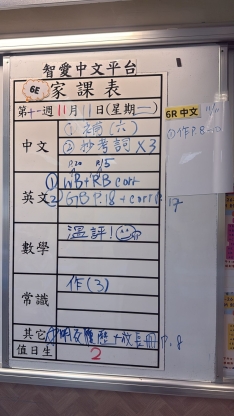 智愛中文平台
6E 家課表
第十一週11月11日(星期二)
中文
① 補(六)
② 抄考詞 X3
P.20 P./5
英文
① WB+RB corr
② GBP.18 + corr P.17
數學
溫評!
常識
作(3)
其它
P.8
值日生
2
6R 中文 11/11
①作P.8-10